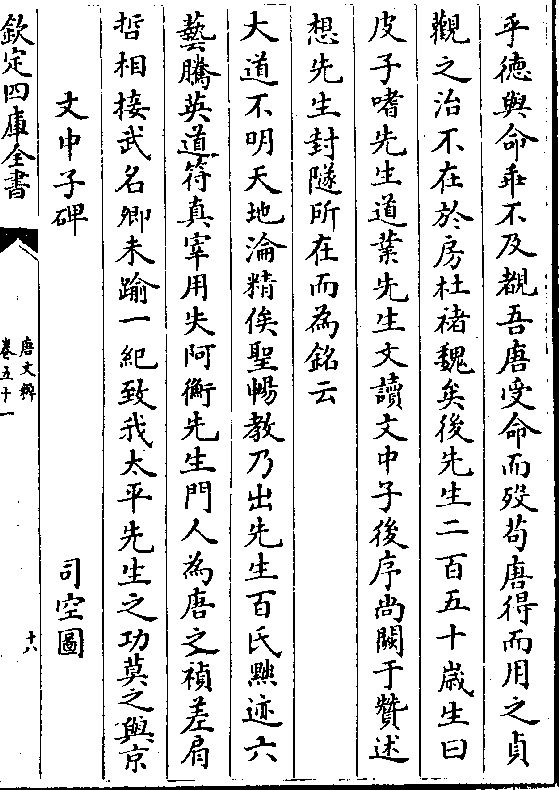 乎德與命乖不及覩吾唐受命而殁茍唐得而用之貞
觀之治不在於房杜褚魏矣後先生二百五十歲生曰
皮子嗜先生道業先生文讀文中子後序尚闕于贊述
想先生封隧所在而為銘云
大道不明天地淪精俟聖暢教乃出先生百氏黜迹六
藝騰英道符真宰用失阿衡先生門人為唐之禎差肩
哲相接武名卿未踰一紀致我太平先生之功莫之與京
文中子碑 司空圖
欽定四庫全書
唐文粹
卷五十一
十六